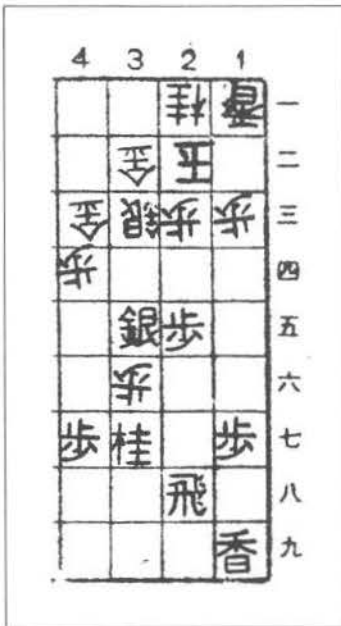 4 3 2 1
桂 香 一
金 王 二
金 銀 歩 歩 三
歩 四
銀 歩 五
歩 六
歩 桂 歩 七
飛 八
香 九